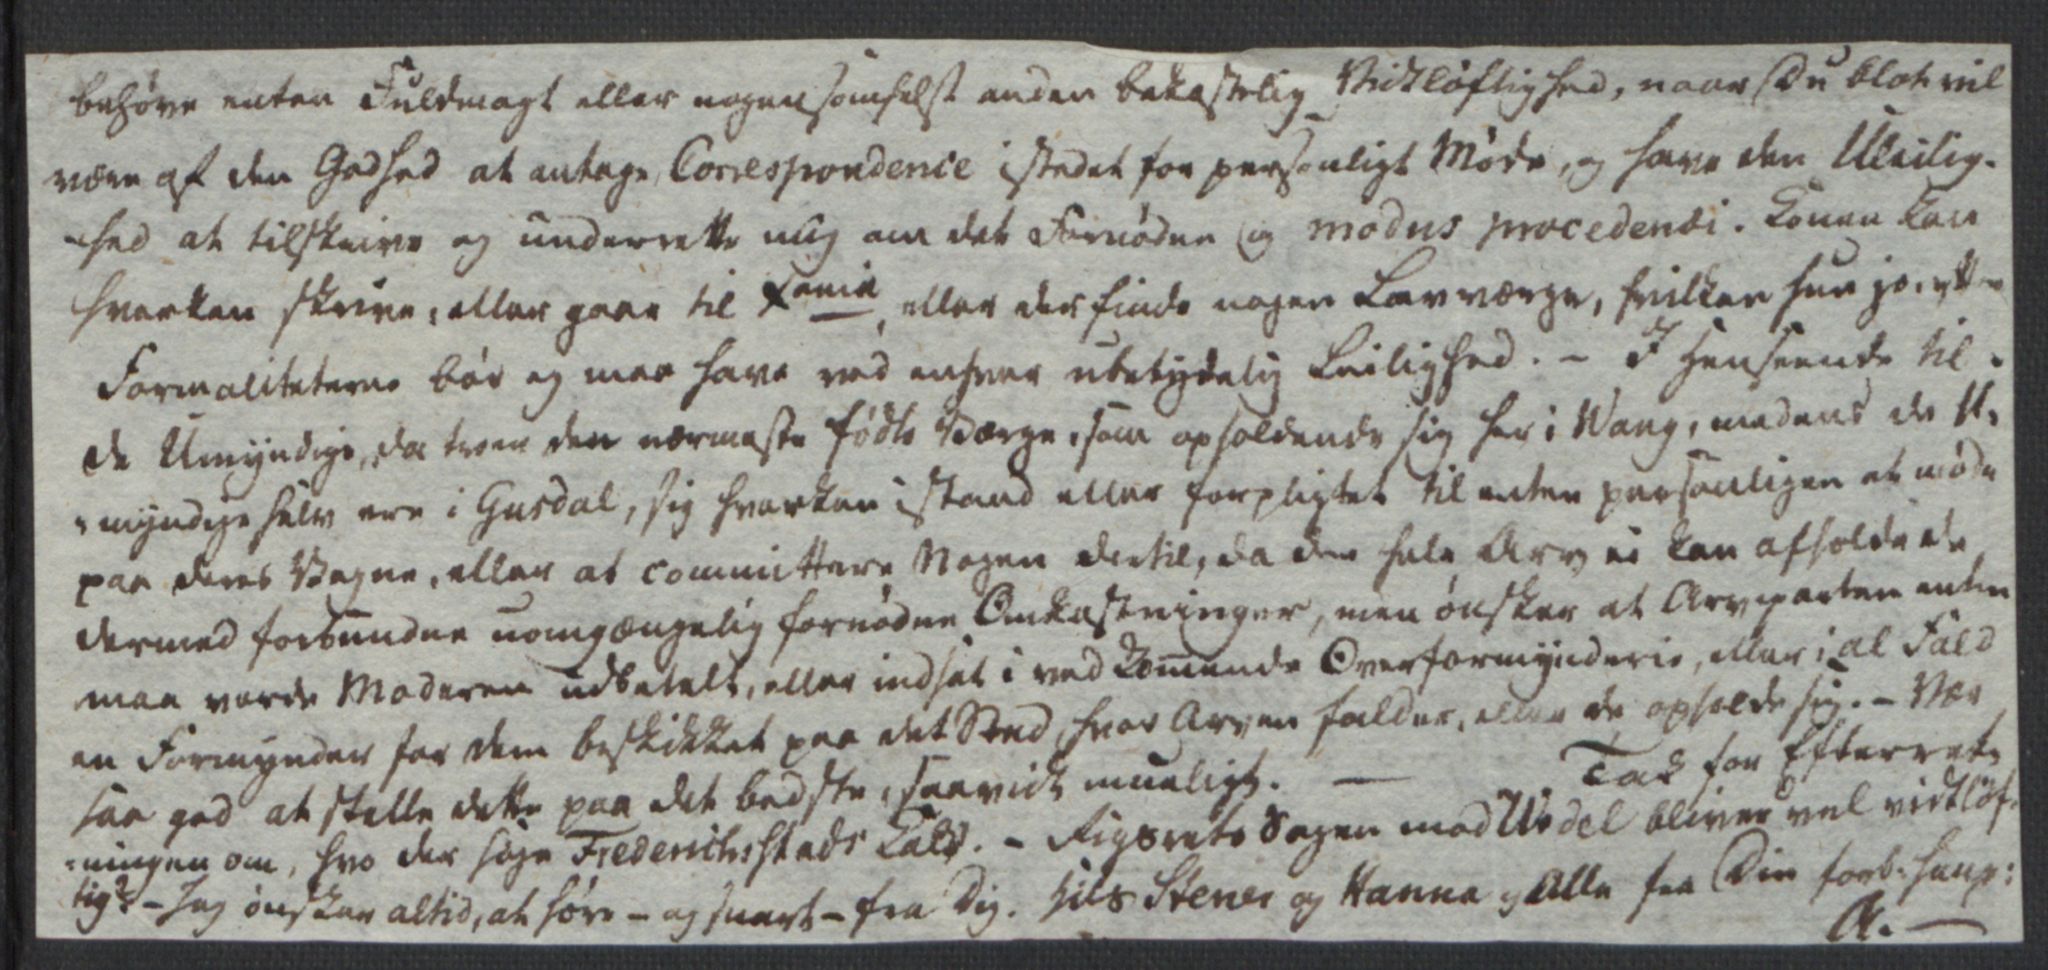 behøve enten Fuldmagt eller nogensomhelst anden bekostelig Vidtløftighed, naar Du blot vil
være af den Godhed at antage Correspondence istedet for personligt Møde, og have den Uleilig-
-hed at tilskrive og underrette mig om det Fornødne og modus procedendi. Konen kan
hverken skrive, eller gaae til eller der finde nogen Lavværge, hvilken hun jo, efter
Formaliteterne bør og maa have ved enhver ubetydelig Leilighed. - I Henseende til
de Umyndige, da troer den nærmeste fødte Værge, som opholdende sig her i Vang, medens de U-
-myndige selv ere i Gusdal, sig hverken istand eller forpligtet til enten personligen at møde
paa deres Vegne, eller at committere Nogen dertil, da den hele Arv ei kan afholde de
dermed forbundne uomgængelig fornødne Omkostninger, men ønsker at Arveparten enten
maa vorde Moderen udbetalt, eller indsat i vedkommende Overformynderie, eller i al Fald
en Formynder for dem beskikket paa det Sted, hvor Arven falder, eller de opholde sig. - Vær
saa god at stelle dette paa det bedste, saavidt mueligt. — Tak for Efterret-
-ningen om, hvo der søge Frederichsstads Kald. - Rigsrets Sagen mod Wedel bliver vel vidtløf-
tig? - Jeg ønsker altid, at høre - og snart - fra Dig. Hils Stener og Hanna og Alle fra Din forb. heng:
A. —